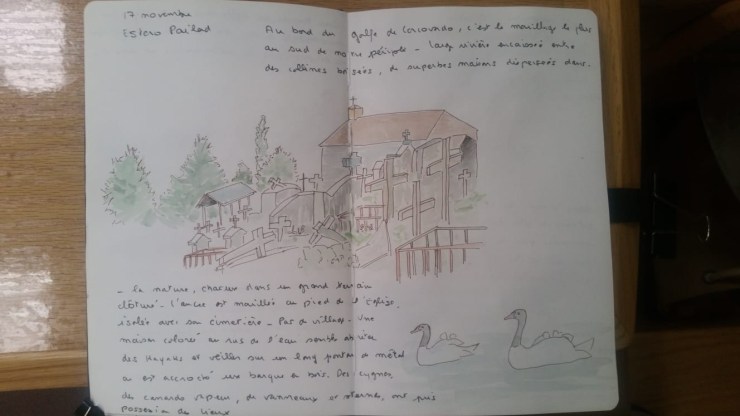 17 novembre
Estero Pailad
Au bord du golfe de Corcovado, c'est le mouillage le plus
au sud de notre périple - large rivière encaissée entre
des collines boisées, de superbes maisons dispersées dans
- la nature, chacune dans un grand terrain
clôturé - L'ancre est mouillée au pied de l'Eglise,
isolée avec son cimetière - Pas de village - Une
maison colorée au ras de l'eau semble
des Kayaks et veiller sur un long ponton de métal
où est accroché une barque en bois. Des cygnes,
des canards vapeur, de vanneaux et sternes, ont pris
possession des lieux